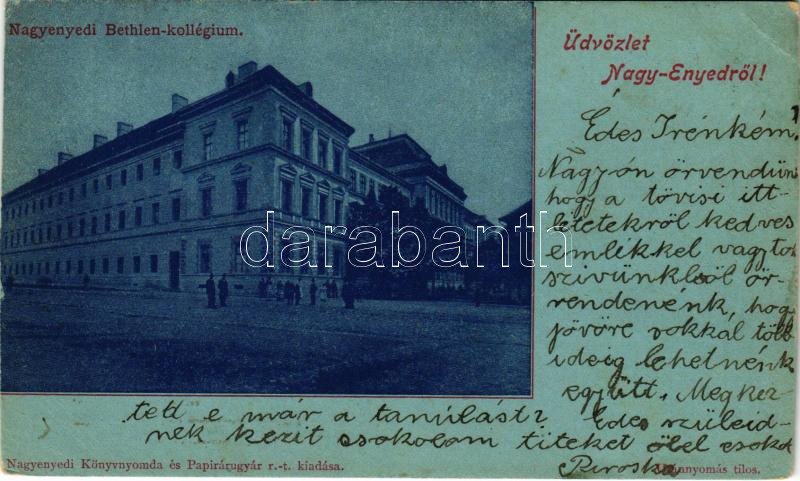 Nagyenyedi Bethlen-kollégium.
Üdvözlet
Nagy-Enyedről!
Édes Irénkém
Nagyon örvendünk
hogy a tövisi itt-
létetekről kedves
emlékkel vagytok
szivünkből ör-
rendenénk, hogy
jövőre sokkal több
ideig lehetnénk
együtt. Megkez-
tett e már a tanulást? Édes szüleid-
nek kezit csokolom titeket ölel csokol
Piroska
darabanth.com
Nagyenyedi Könyvnyomda és Papirárugyár r.-t. kiadása.
tilos.